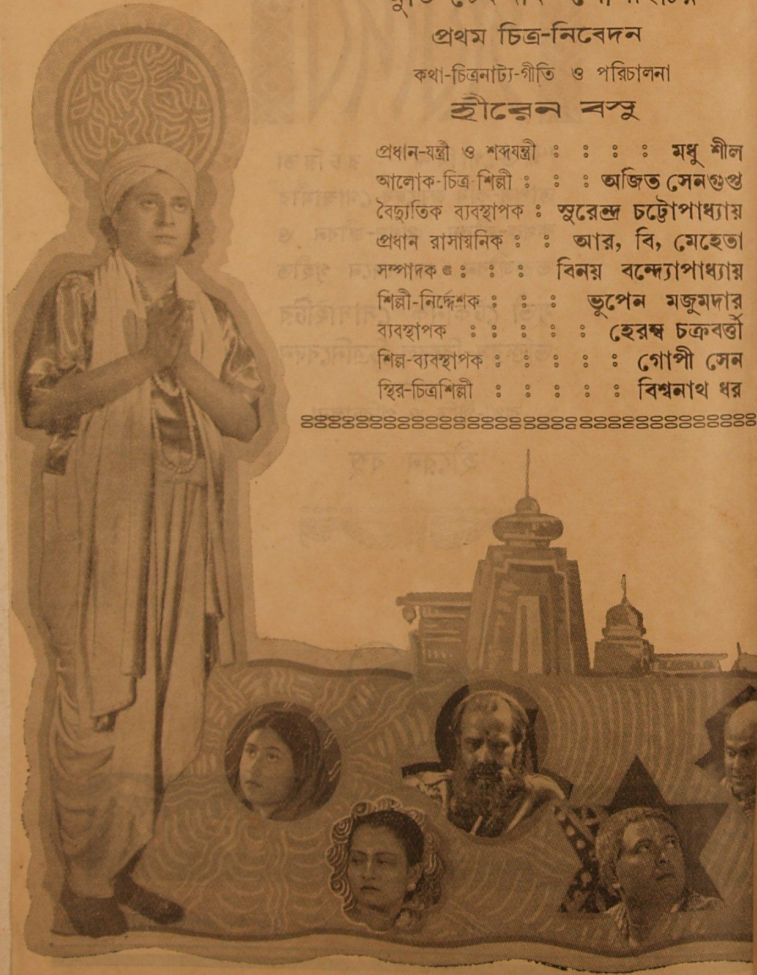 প্রথম চিত্র-নিবেদন
কথা-চিত্রনাট্য-গীতি ও পরিচালনা
হীরেন বসু
প্রধান-যন্ত্রী ও শব্দযন্ত্রী : : : : মধু শীল
আলোক-চিত্র শিল্পী : : : অজিত সেনগুপ্ত
বৈদ্যুতিক ব্যবস্থাপক : সুরেন্দ্র চট্টোপাধ্যায়
প্রধান রাসায়নিক : : আর, বি, মেহেতা
সম্পাদক : : : : বিনয় বন্দ্যোপাধ্যায়
শিল্পী-নির্দ্দেশক : : : ভুপেন মজুমদার
ব্যবস্থাপক : : : : : হেরম্ব চক্রবর্ত্তী
শিল্প-ব্যবস্থাপক : : : : : গোপী সেন
স্থির-চিত্রশিল্পী : : : : : বিশ্বনাথ ধর